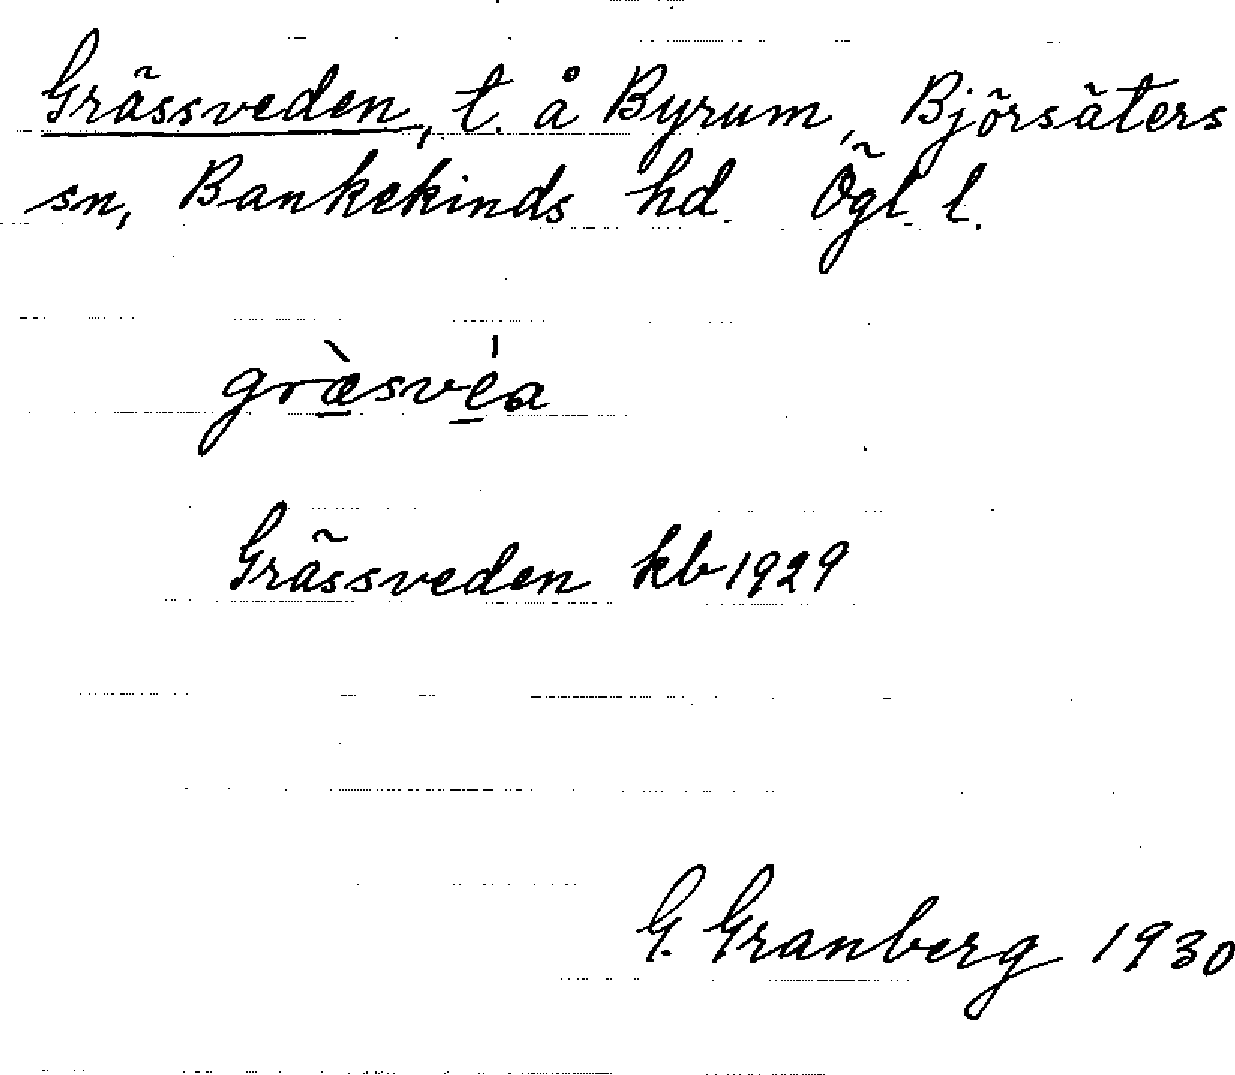 Grässveden, t. å Byrum, Björsäters
sn, Bankekinds hd. Ögl. l.
græ̀svéa
Grässveden kb 1929
G. Granberg 1930